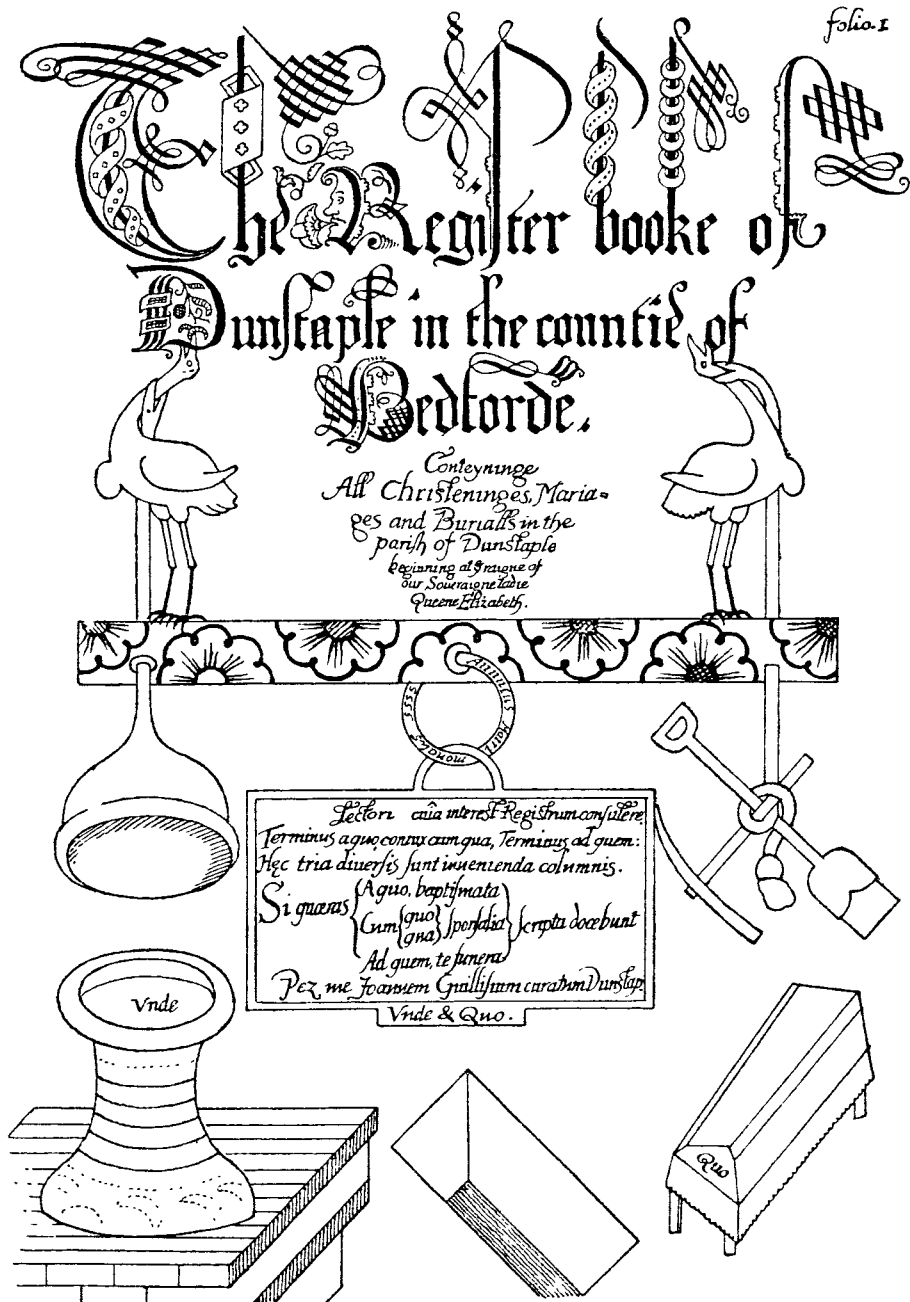 folio.1
The Register booke of
Dunstaple in the countie of
Bedforde.
Conteyninge
All Christeninges, Maria-
ges and Burialls in the
parish of Dunstaple
beginning at ye raigne of
our Soueraigne ladie
Queene Elizabeth.
vinculus matri
monalis
Lectori cuia interest Registrum consulere
Terminus a quo, cum qua, Terminus ad quem:
Hęc tria diuersis sunt inuenienda columnis.
Si quæras
A quo, baptismata
Cum quo qua sponsalia
scripta docebunt
Ad quem, te funera
Per me Joannem curatum Dunstap.
Vnde & Quo.
Vnde
Quo